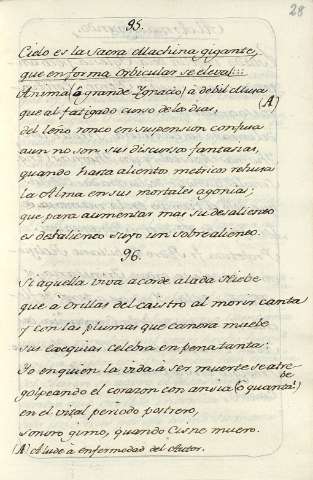 28
95.
Cielo es la Sacra Machina gigante,
que en forma Orbicular se eleva!:::
Anima (ô grande Ygnacio) à debil Musa
(A)
que al fatigado curso de los dias,
del leño ronco en suspension confusa
aun no son sus discursos fantasias,
quando hasta alientos metricos rehusa
la Alma en sus mortales agonias;
que para aumentar mas su desaliento
es desaliento suyo un sobrealiento.
96.
Si aquella viva acorde alada Nieve
que à Orillas del caistro al morir canta
y con las plumas que canora mueve
sus exequias celebra en pena tanta:
Yo en quien la vida à ser muerte se atre-
be
golpeando el corazon con ansia (ô quanta!)
en el vital periodo postrero,
sonoro gimo, quando Cisne muero.
(A) Alude à enfermedad del Autor.